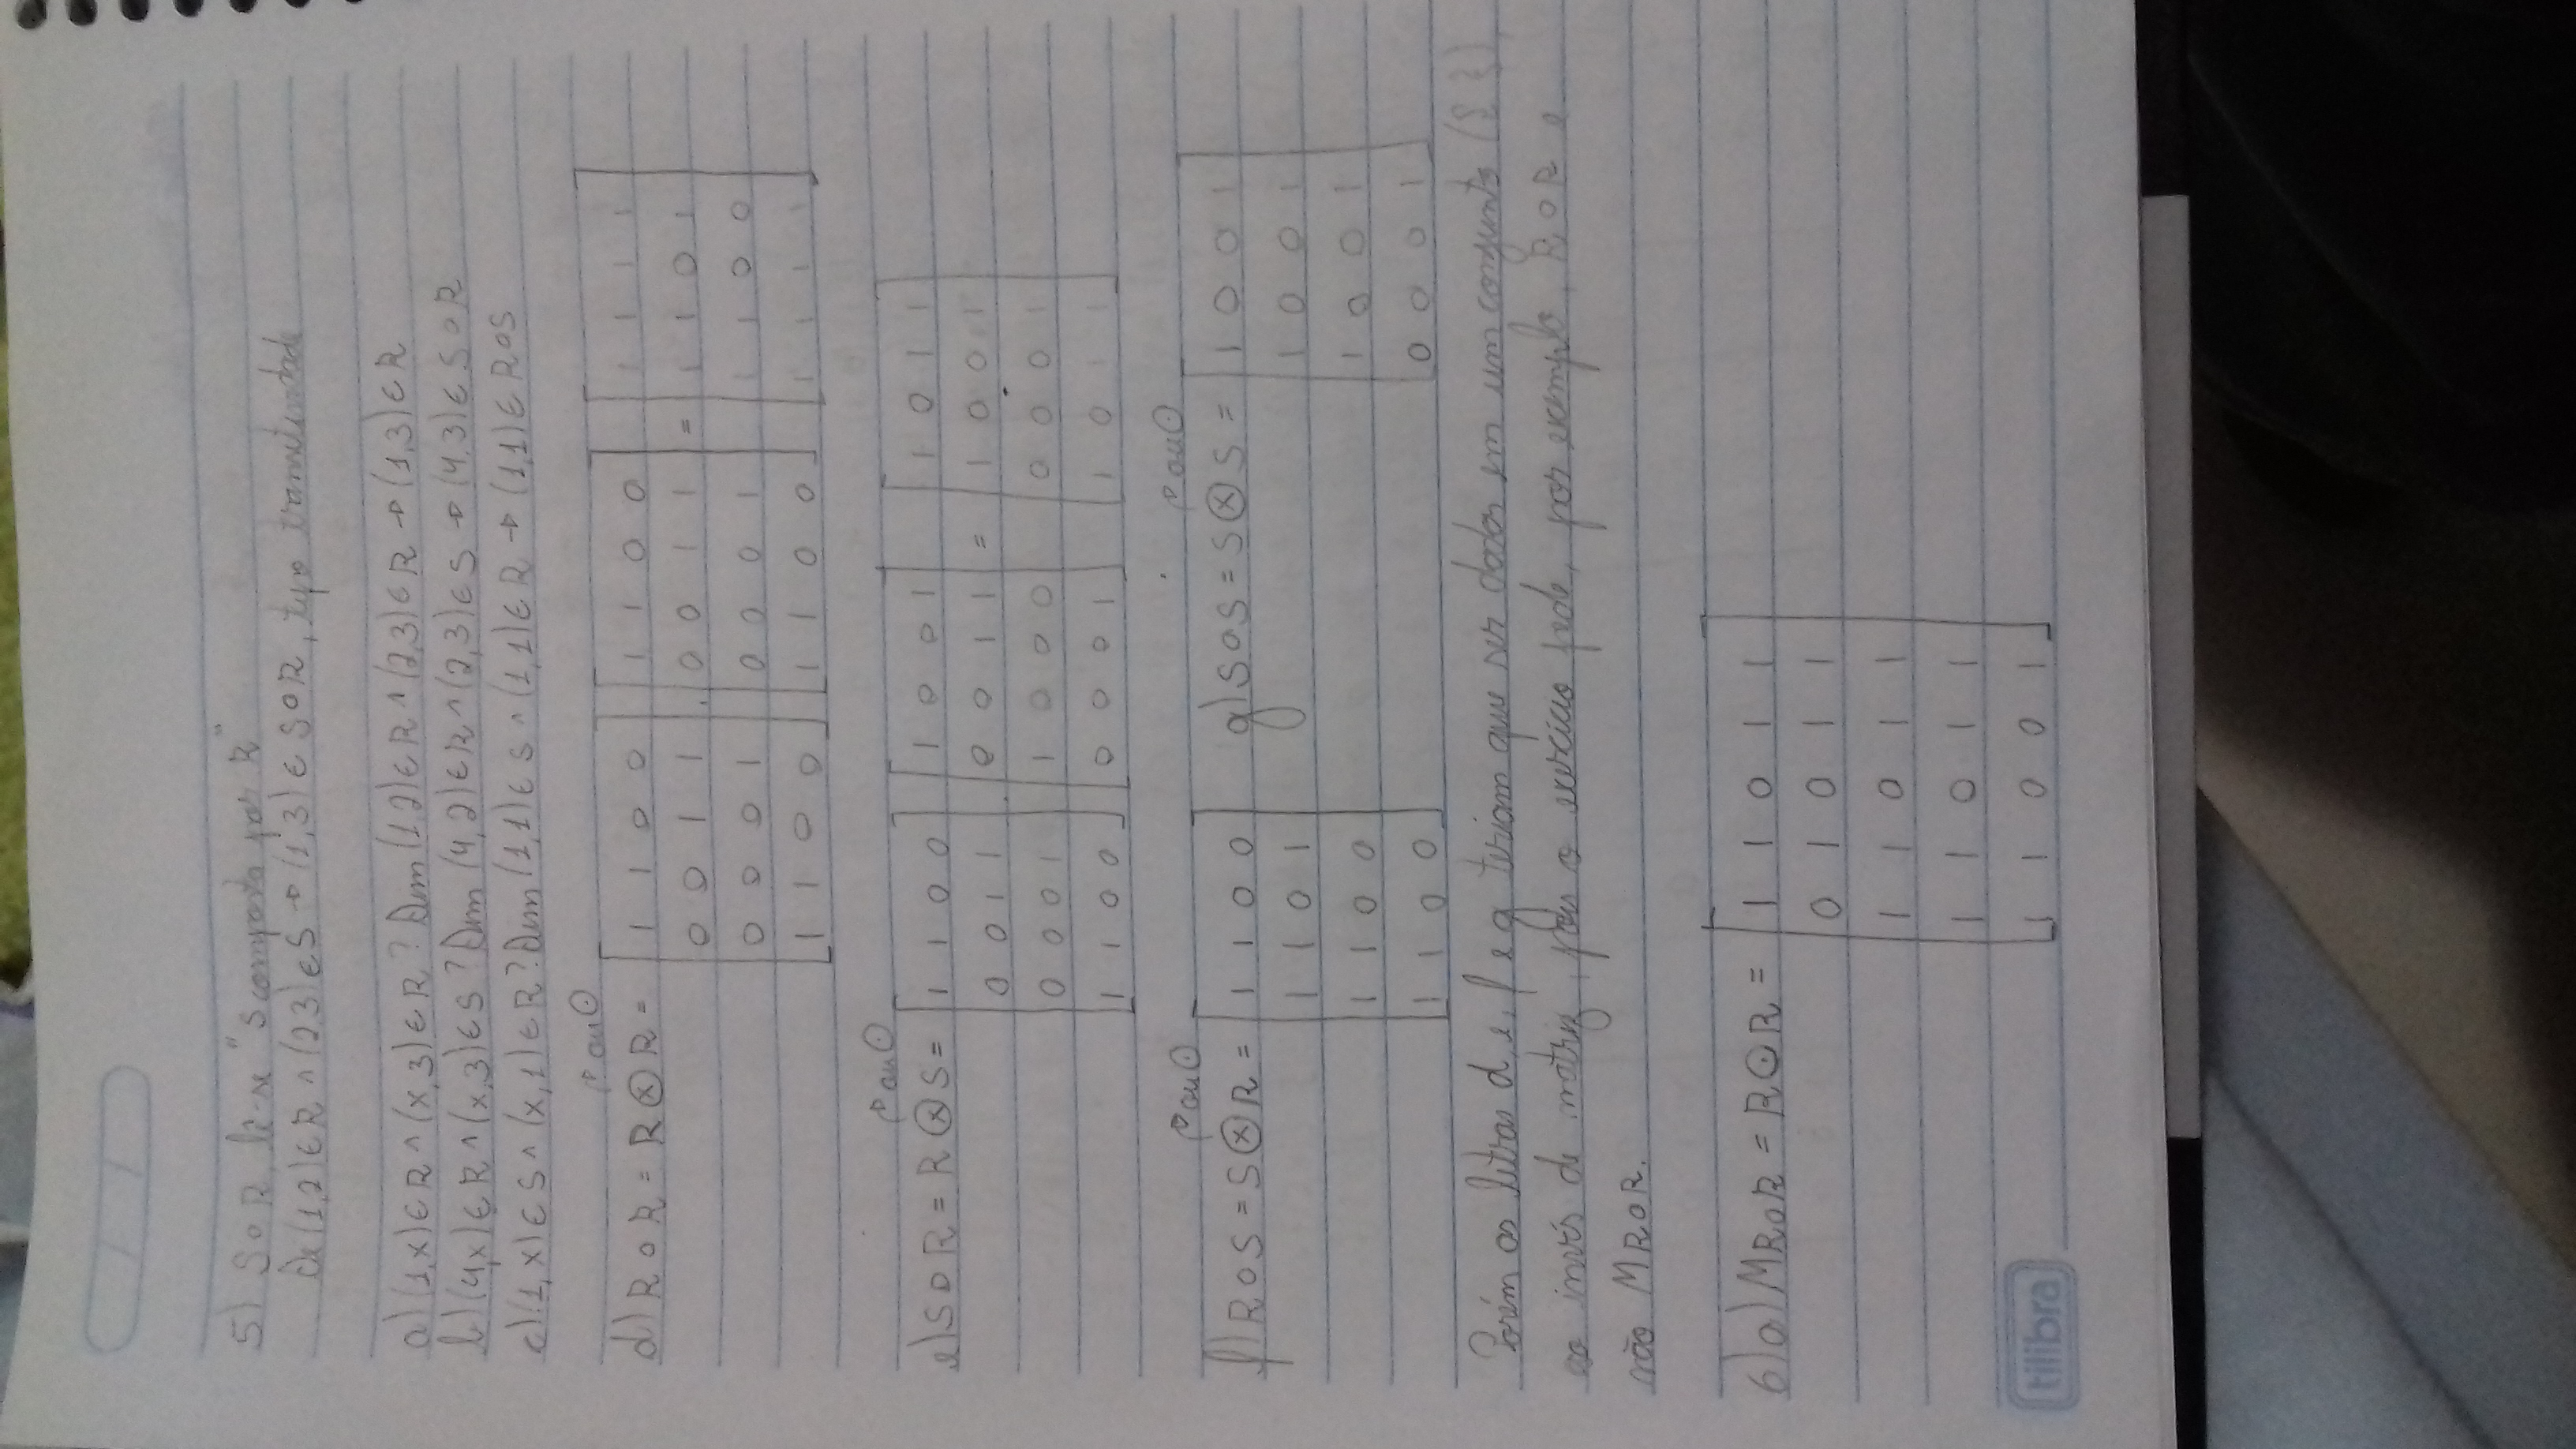 5) S∘R, lê-se "S composta por R"
Se (1,2)∈R ∧ (2,3)∈S → (1,3)∈S∘R, tipo transitividade
a) (1,x)∈R ∧ (x,3)∈R? Sim (1,2)∈R ∧ (2,3)∈R → (1,3)∈R
b) (4,x)∈R ∧ (x,3)∈S? Sim (4,2)∈R ∧ (2,3)∈S → (4,3)∈S∘R
c) (1,x)∈S ∧ (x,1)∈R? Sim (1,1)∈S ∧ (1,1)∈R → (1,1)∈R∘S
ou ⊙
d) R∘R = R⊗R = [1 1 0 0] [1 1 0 0] [1 1 1 1]
0 0 1 1 . 0 0 1 1 = 1 1 0 1
0 0 0 1 0 0 0 1 1 1 0 0
1 1 0 0 1 1 0 0 1 1 1 1
ou ⊙
e) S∘R = R⊗S = 1 1 0 0 1 0 0 1 1 0 1 1
0 0 1 1 . 0 0 1 1 = 1 0 0 1
0 0 0 1 1 0 0 0 0 0 0 1
1 1 0 0 0 0 0 1 1 0 1 1
ou ⊙ ou ⊙
f) R∘S = S⊗R = 1 1 0 0 g) S∘S = S⊗S = 1 0 0 1
1 1 0 1 1 0 0 1
1 1 0 0 1 0 0 1
1 1 0 0 0 0 0 1
Porém as letras d, e, f e g teriam que ser dadas em um conjunto ({ }),
ao invés de matriz, pois o exercício pede, por exemplo, R∘R e
não MR∘R.
6) a) MR∘R = R⊙R = 1 1 0 1 1
0 1 0 1 1
1 1 0 1 1
1 1 0 1 1
1 1 0 0 1
tilibra